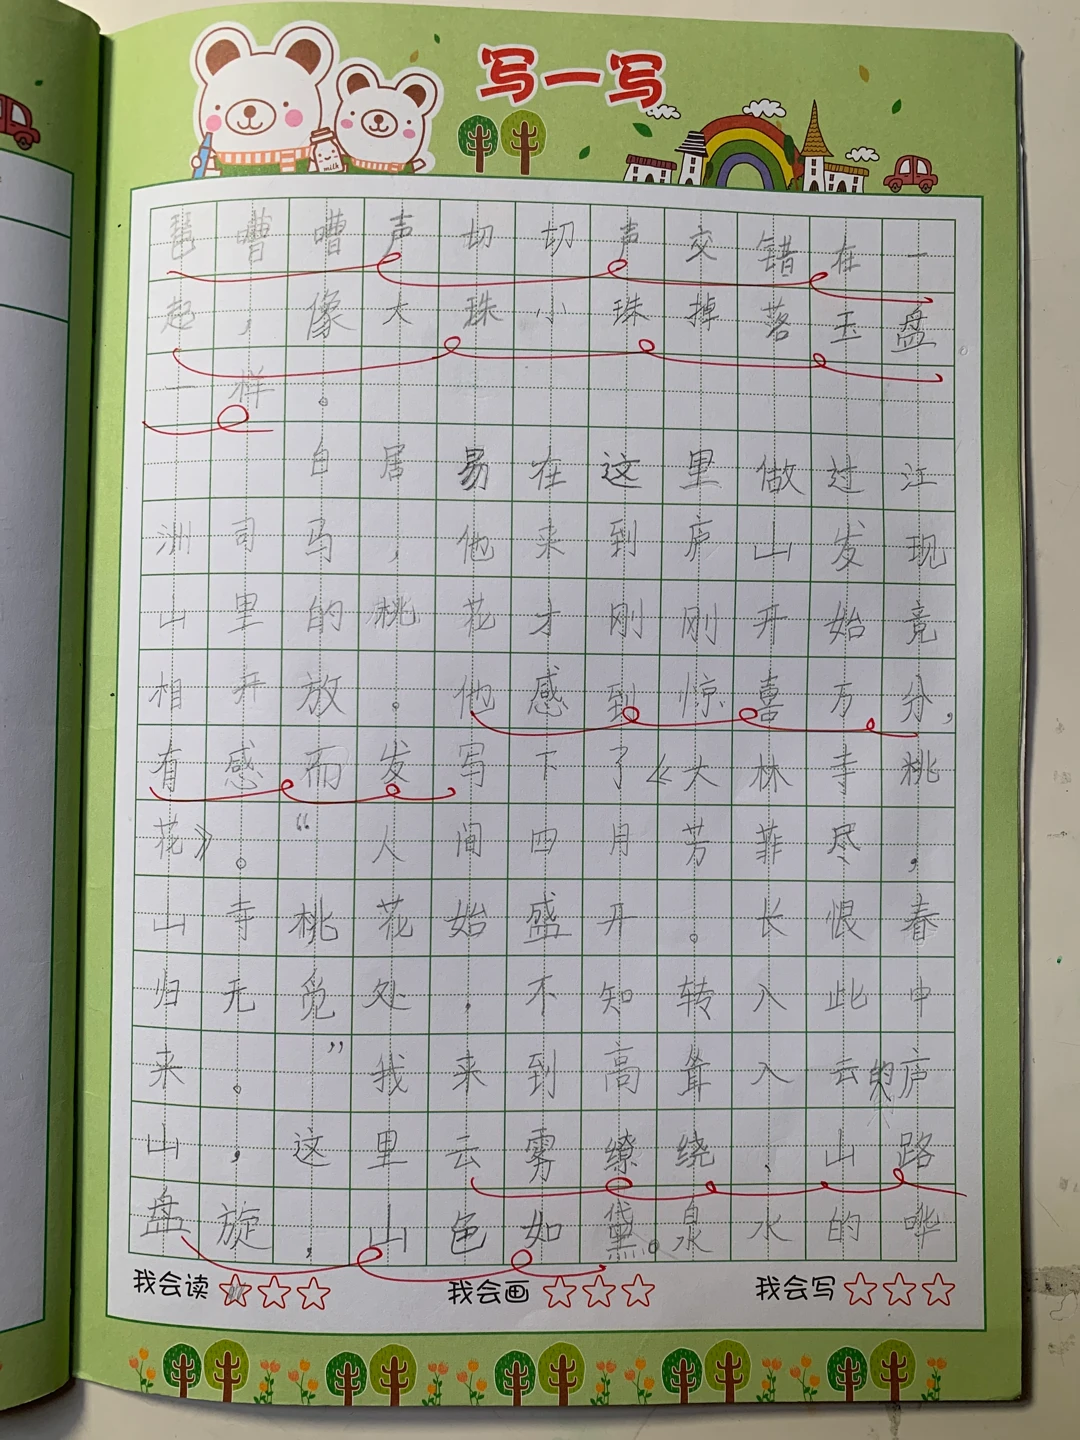 写一写
milk
琶嘈嘈声切切声交错在一
起，像大珠小珠掉落玉盘
一样。
白居易在这里做过江
洲司马，他来到庐山发现
山里的桃花才刚刚开始竞
相开放。他感到惊喜万分，
有感而发写下了《大林寺桃
花》。“人间四月芳菲尽，
山寺桃花始盛开。长恨春
归无觅处，不知转入此中
来。”我来到高耸入云的庐
山，这里云雾缭绕、山路
盘旋，山色如黛。泉水的哗
我会读 我会画 我会写